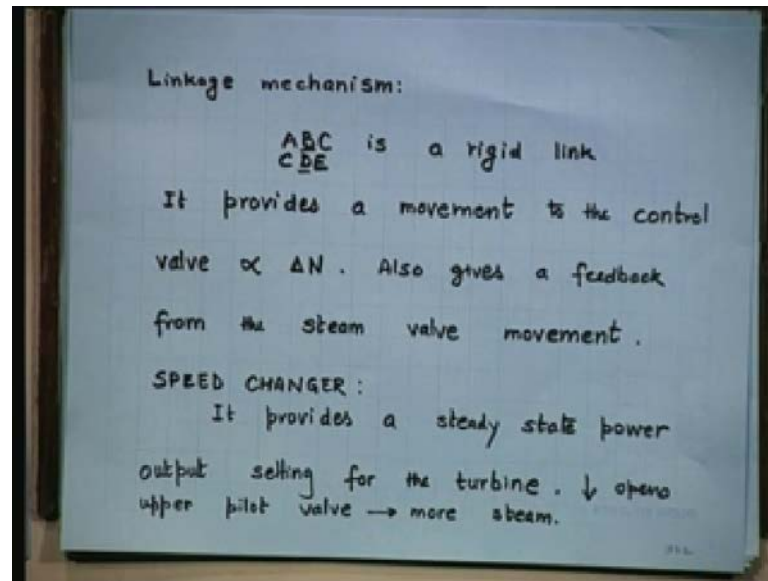 Linkage mechanism:
ABC is a rigid link
CDE
It provides a movement to the control
valve ∝ ΔN. Also gives a feedback
from the steam valve movement.
SPEED CHANGER:
It provides a steady state power
output setting for the turbine. ↓ opens
upper pilot valve → more steam.